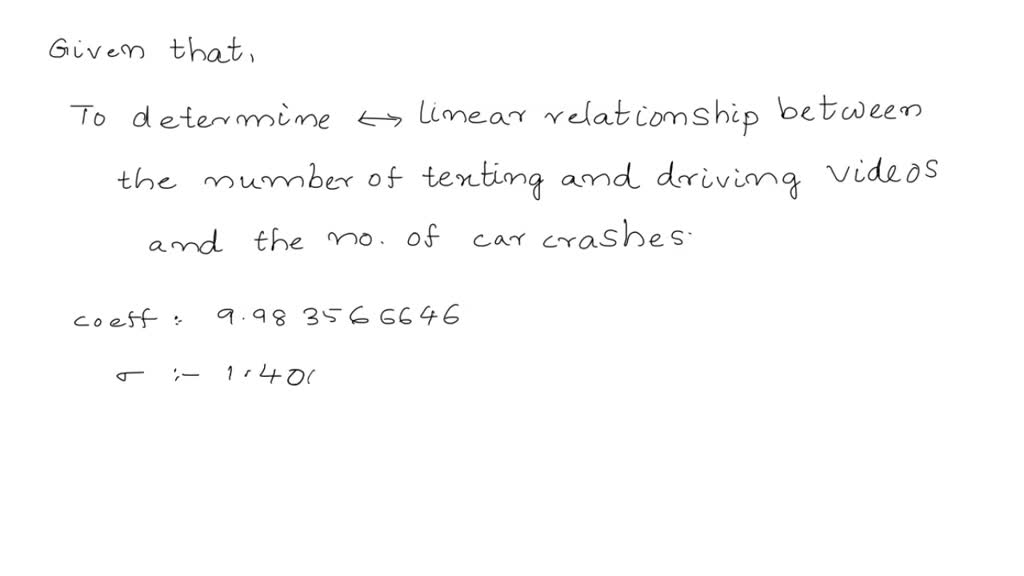 Given that,
To determine ↔ linear relationship between
the number of texting and driving videos
and the no. of car crashes.
coeff : 9.983566646
σ :- 1.40